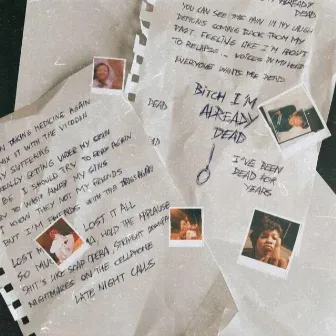 ALREADY
DEAD
YOU CAN SEE THE PAIN IN MY LAUGH
DEMONS COMING BACK FROM MY
PAST FEELING LIKE I'M ABOUT
TO RELAPSE VOICES IN MY HEAD
EVERYONE WANTS ME DEAD
BITCH I'M
ALREADY
DEAD
I'VE BEEN
DEAD FOR
YEARS
DEAD
DEAD
TAKING MEDICINE AGAIN
MIX IT WITH THE VICODIN
MY SUFFERING
REALLY GETTING UNDER MY SKIN
I SHOULD TRY TO PRAY AGAIN
TO WASH AWAY MY SINS
I KNOW THEY NOT MY FRIENDS
BUT I'M FRIENDS WITH THE DRUGS AGAIN
LOST MY LOST IT ALL
SO MUCH HOLD THE APPLAUSE
SHIT'S LIKE SOAP OPERA STRAIGHT
NIGHTMARES ON THE CELLPHONE
LATE NIGHT CALLS